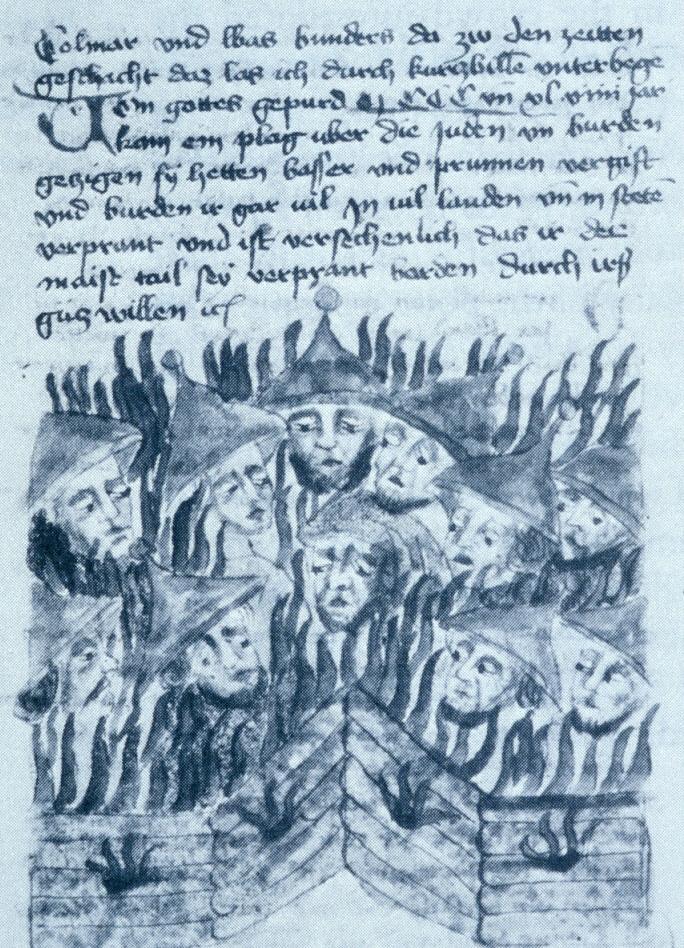 Colmar vnd was bunders da zw den zeitten
geschicht daz las ich durch kurczbille vnterbege
Von gottes gepurd MCCC vn xlviiii jar
kam ein plag uber die juden vn burden
geczigen sy hetten basser vnd prunnen vergift
vnd burden ir gar vil In vil landen vn in stete
verprant vnd ist versechenlich das ir der
maist tail sey verprant borden durch irs
gutz willen